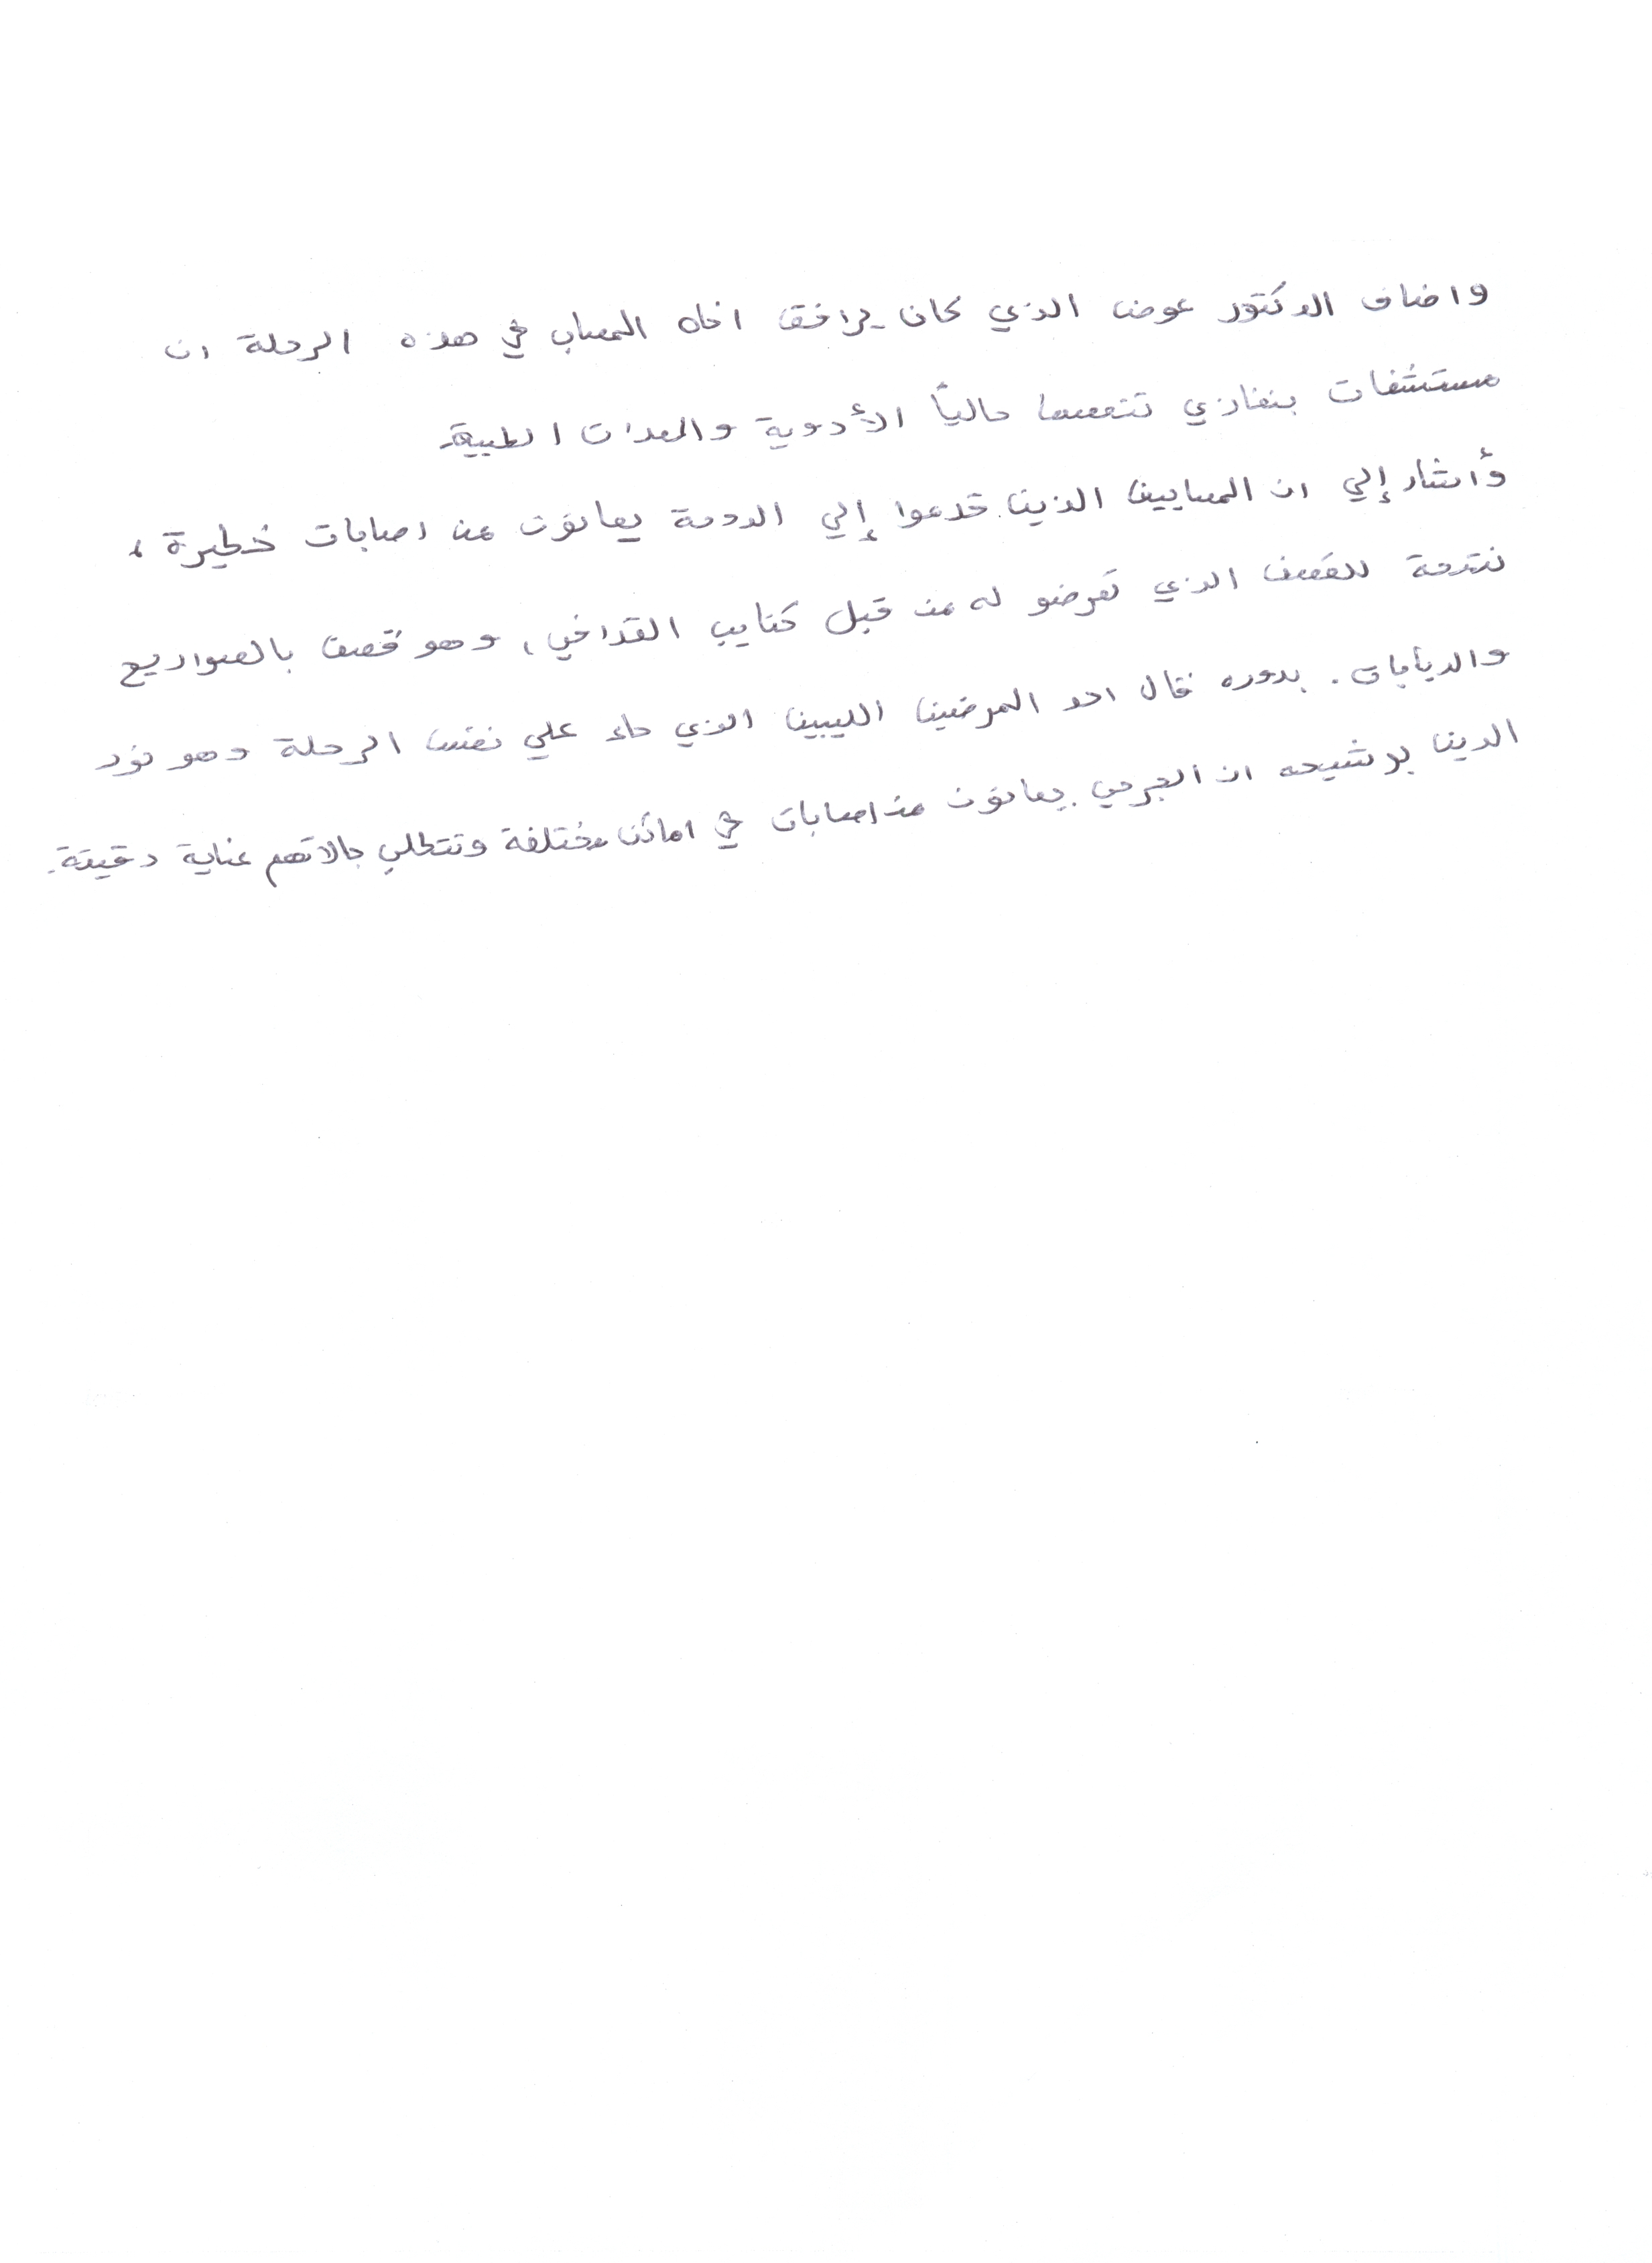 واضاف الدكتور عوض الذي كان يرافق اخاه المصاب في هذه الرحلة ان
مستشفات بنغازي تنقصها حالياً الأدوية والمعدات الطبية.
وأشار إلي ان المصابين الذين قدموا إلي الدوحة يعانون من اصابات خطيرة ،
نتيجة للقصف الذي تعرضو له من قبل كتايب القذافي، وهو قصف بالصواريع
والدبابات. بدوره قال احد الممرضين الليبين الذي جاء علي نفس الرحلة وهو نور
الدين بوشيحه ان الجرحي يعانون من اصابات في اماكن مختلفة وتتطلب حالاتهم عناية دقيقة.